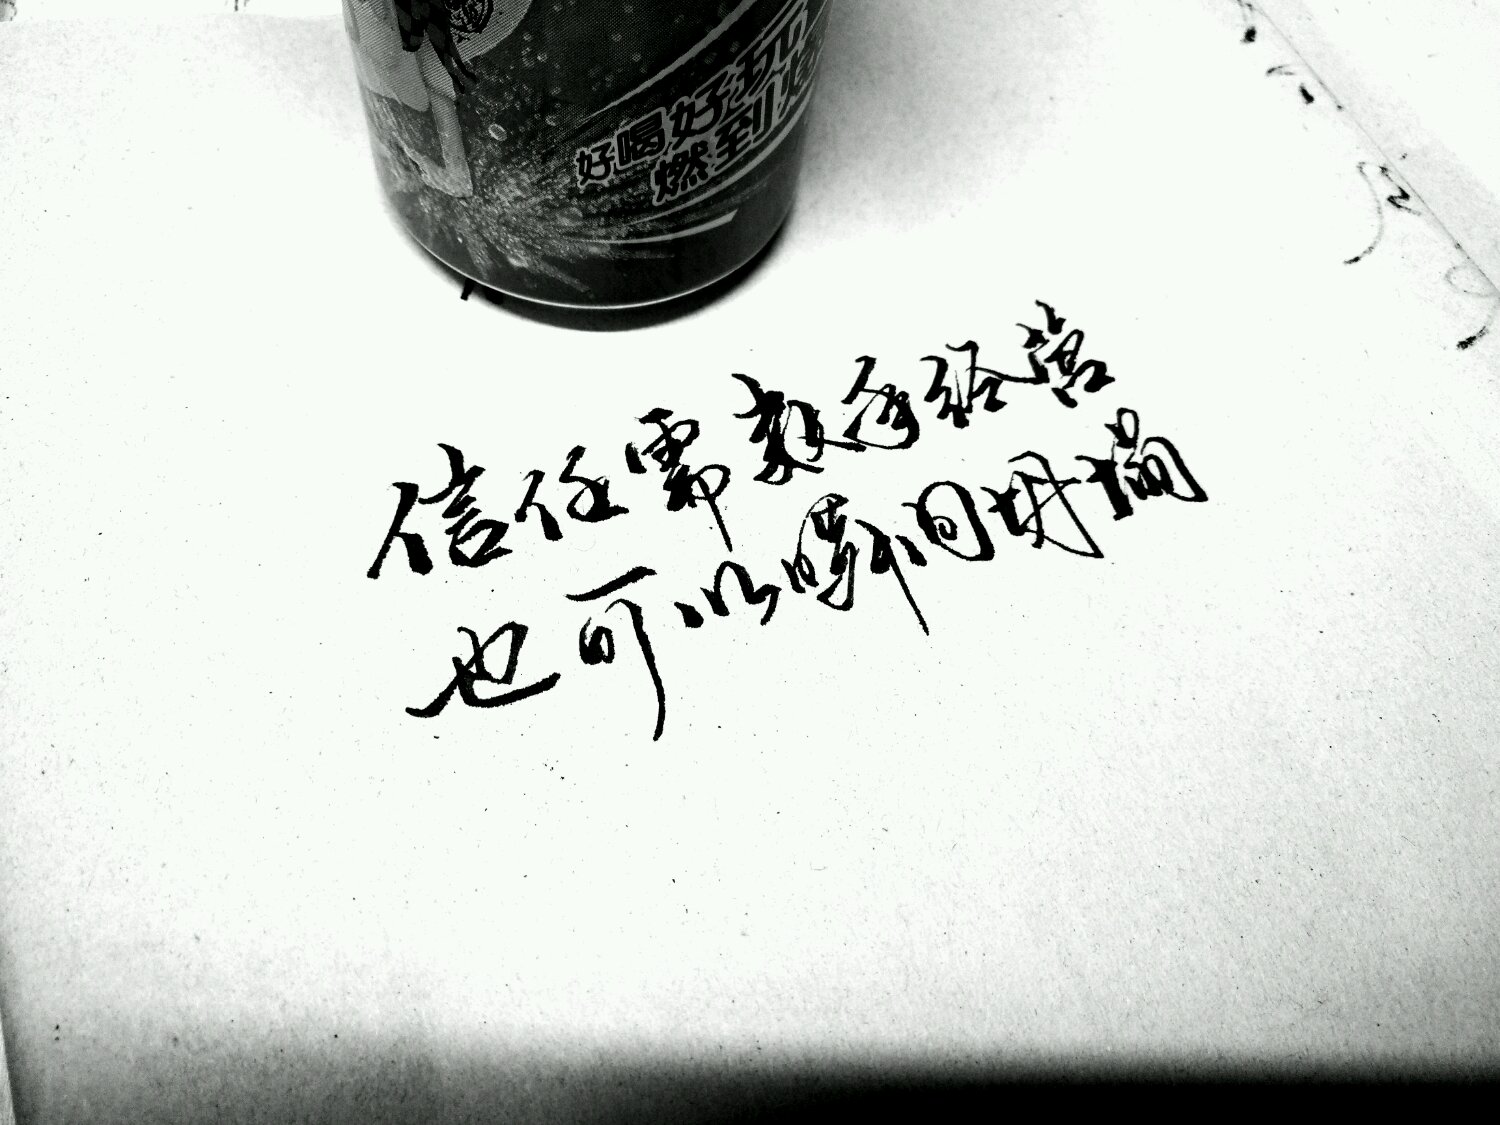 好喝好玩
燃到爆
信任需数年经营
也可以瞬间坍塌